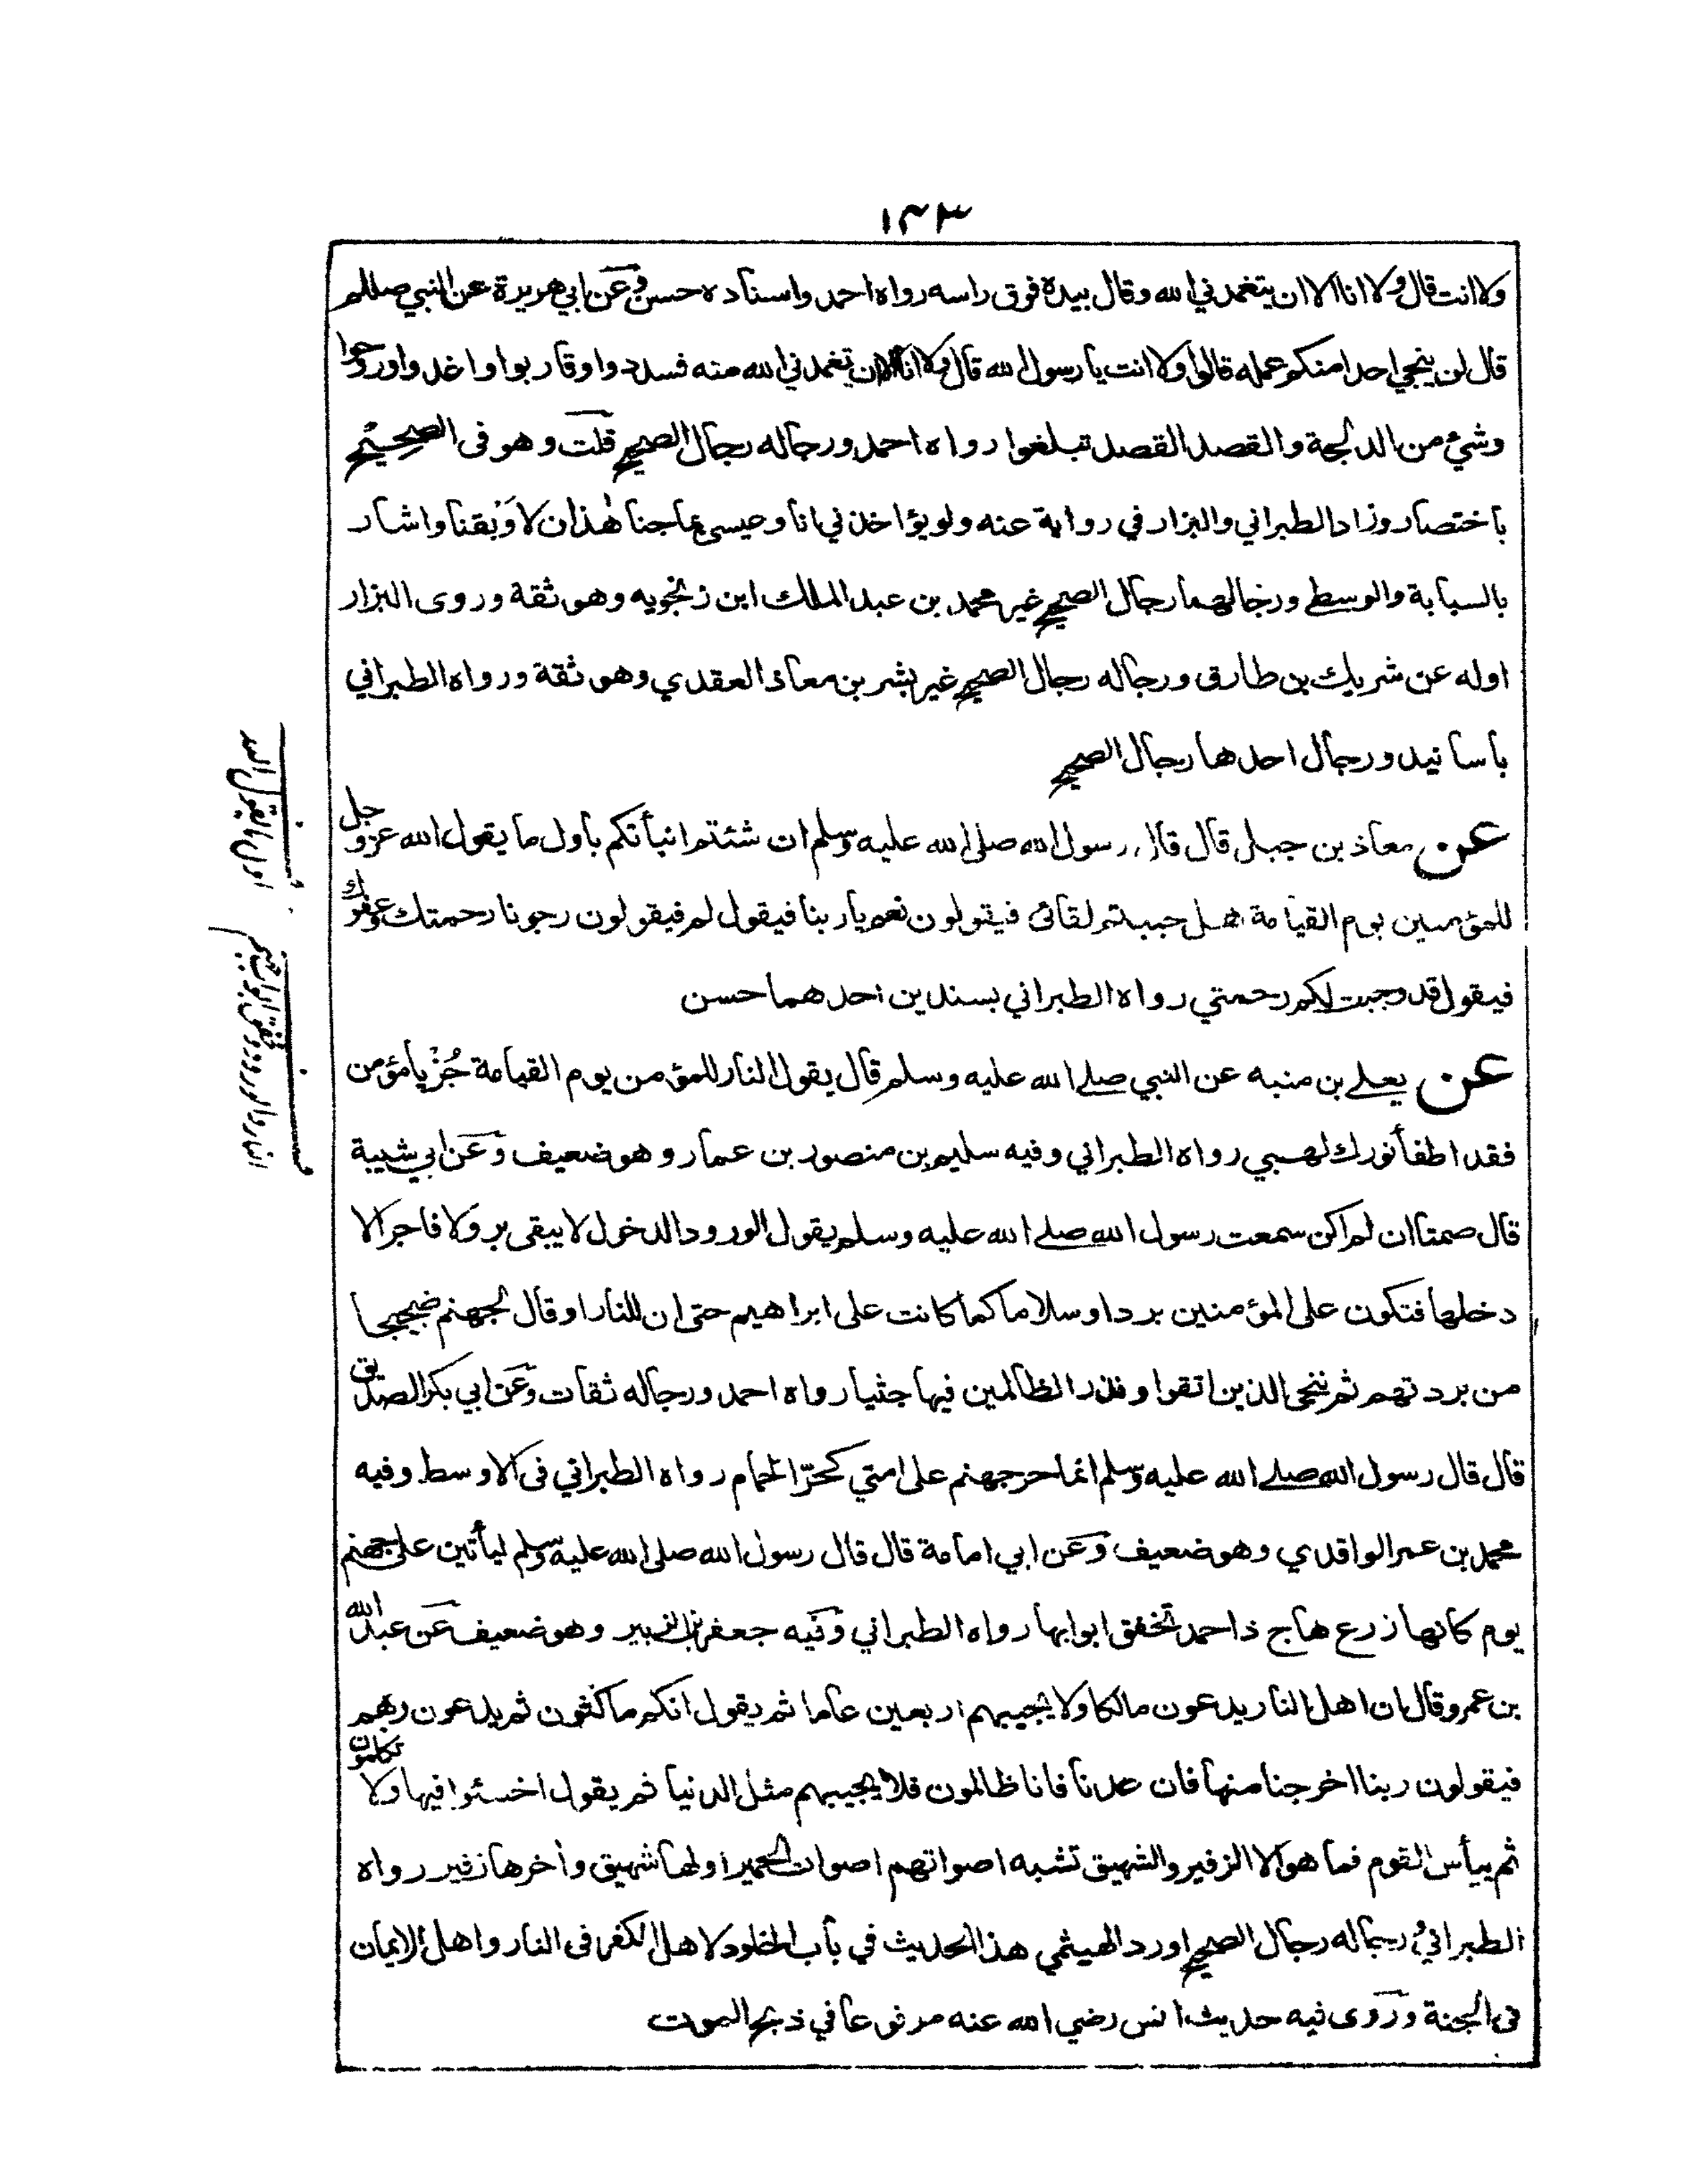 ١٤٣
ولا انت قال ولا انا الا ان يتغمدني الله وقال بيده فوق راسه رواه احمد واسناده حسن وعن ابي هريرة عن النبي صللم
قال لن ينجي احدا منكم عمله قالوا ولا انت يا رسول الله قال ولا انا الا ان تغمدني الله منه فسددوا وقاربوا واغدوا وروحوا
وشيء من الدلجة والقصد القصد تبلغوا رواه احمد ورجاله رجال الصحيح قلت وهو فى الصحيح
باختصار وزاد الطبراني والبزار في رواية عنه ولو يؤاخذني انا وعيسى بما جنا هذان لاوبقنا واشار
بالسبابة والوسطے ورجالهما رجال الصحيح غير محمد بن عبد الملك ابن زنجويه وهو ثقة وروى البزار
اوله عن شريك بن طارق ورجاله رجال الصحيح غير بشر بن معاذ العقدي وهو ثقة ورواه الطبراني
باسانيد ورجال احدها رجال الصحيح
عن معاذ بن جبل قال قال رسول الله صلى الله عليه وسلم ان شئتم انبأتكم باول ما يقول الله عز وجل
للمؤمنين يوم القيامة هل حببتم لقائى فيقولون نعم يا ربنا فيقول لم فيقولون رجونا رحمتك وعفوك
فيقول قد وجبت لكم رحمتي رواه الطبراني بسندين احدهما حسن
عن يعلے بن منبه عن النبي صلے الله عليه وسلم قال يقول النار للمؤمن يوم القيامة جُزْ يا مؤمن
فقد اطفأ نورك لهبي رواه الطبراني وفيه سليم بن منصور بن عمار وهو ضعيف وعن ابي شيبة
قال صمتا ان لم اكن سمعت رسول الله صلے الله عليه وسلم يقول الورود الدخول لا يبقى بر ولا فاجر الا
دخلها فتكون على المؤمنين بردا وسلاما كما كانت على ابراهيم حتى ان للنار او قال لجهنم ضجيجا
من بردتهم ثم ننجى الذين اتقوا ونذر الظالمين فيها جثيا رواه احمد ورجاله ثقات وعن ابي بكر الصديق
قال قال رسول الله صلے الله عليه وسلم انما حر جهنم على امتي كحرّ الحمام رواه الطبراني فى الاوسط وفيه
محمد بن عمر الواقدي وهو ضعيف وعن ابي امامة قال قال رسول الله صلى الله عليه وسلم ليأتين على جهنم
يوم كانها زرع هاج ذا احمد تخفق ابوابها رواه الطبراني وفيه جعفر بن الزبير وهو ضعيف عن عبد الله
بن عمرو قال ان اهل النار يدعون مالكا ولا يجيبهم اربعين عاما ثم يقول انكم ماكثون ثم يدعون ربهم
فيقولون ربنا اخرجنا منها فان عدنا فانا ظالمون فلا يجيبهم مثل الدنيا ثم يقول اخسئوا فيها ولا تكلمون
ثم ييأس القوم فما هو الا الزفير والشهيق تشبه اصواتهم اصوات الحمير اولها شهيق واخرها زفير رواه
الطبراني ورجاله رجال الصحيح اورد الهيثمي هذا الحديث في باب الخلود لاهل الكفر فى النار واهل الايمان
فى الجنة وروى فيه حديث انس رضي الله عنه مرفوعا في ذبح الموت